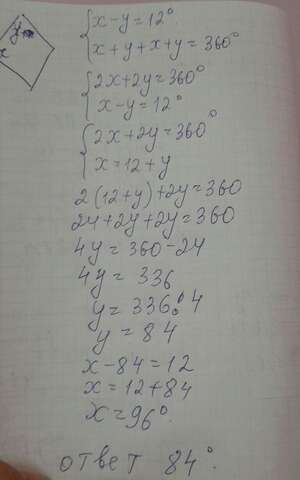 x-y=12°
x+y+x+y=360°
2x+2y=360°
x-y=12°
2x+2y=360°
x=12+y
2(12+y)+2y=360
24+2y+2y=360
4y=360-24
4y=336
y=336:4
y=84
x-84=12
x=12+84
x=96°
ответ 84°.